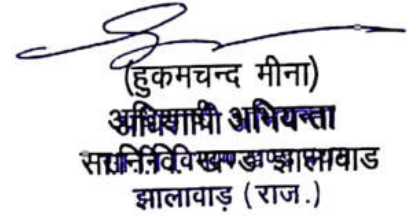 (हुकमचन्द मीना)
अधिशाषी अभियन्ता
सा.नि.वि. खण्ड झालावाड
झालावाड़ (राज.)